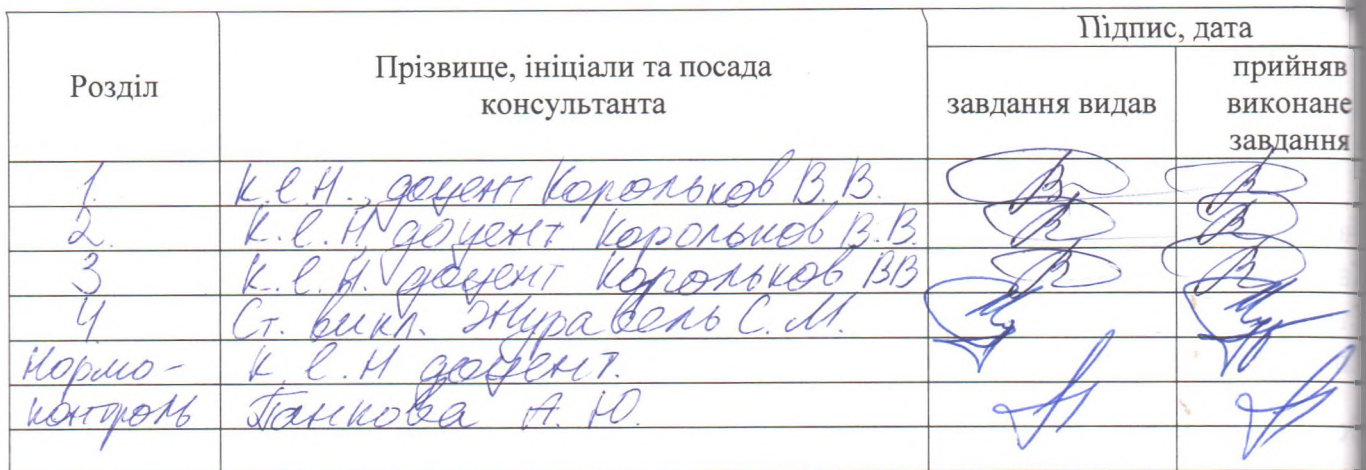 Розділ
Прізвище, ініціали та посада
консультанта
Підпис, дата
завдання видав
прийняв
виконане
завдання
1. К.е.н., доцент Корольков В.В.
2. К.е.н. доцент Корольков В.В.
3 К.е.н. доцент Корольков ВВ
4 Ст. викл. Журавель С.М.
Нормо- К.е.н доцент.
контроль Панкова А.Ю.